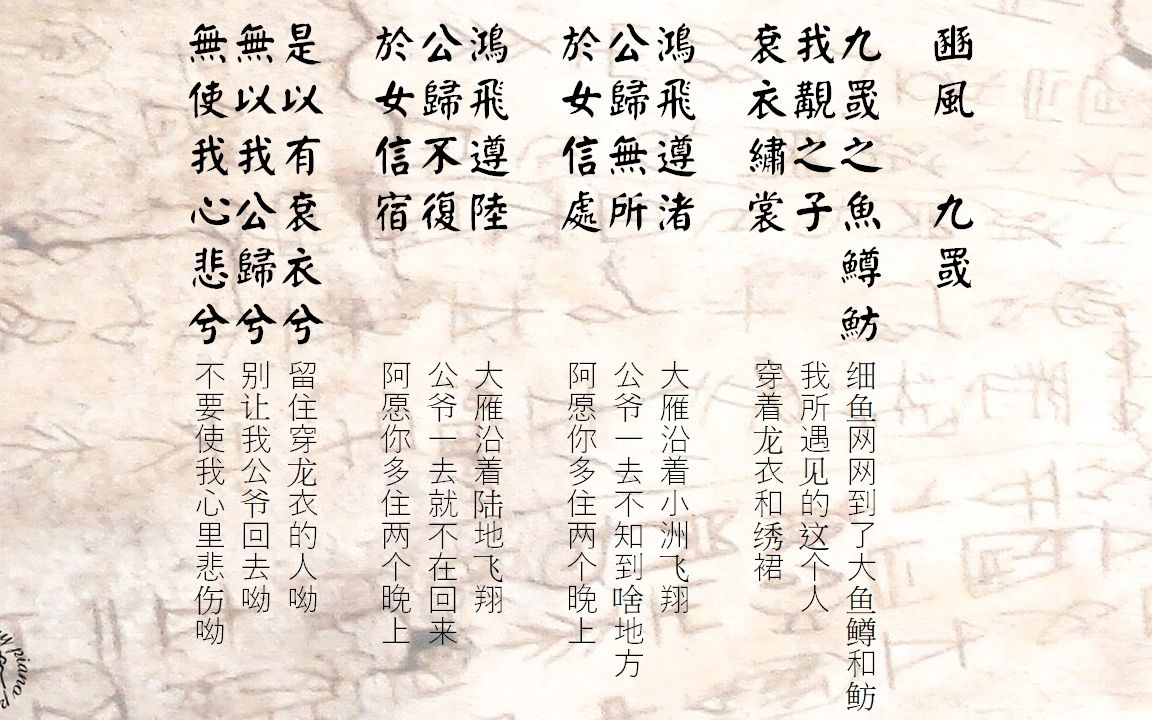 豳風 九罭
九罭之魚鱒魴
我覯之子
袞衣繡裳
细鱼网网到了大鱼鳟和鲂
我所遇见的这个人
穿着龙衣和绣裙
鴻飛遵渚
公歸無所
於女信處
大雁沿着小洲飞翔
公爷一去不知到啥地方
阿愿你多住两个晚上
鴻飛遵陸
公歸不復
於女信宿
大雁沿着陆地飞翔
公爷一去就不在回来
阿愿你多住两个晚上
是以有袞衣兮
無以我公歸兮
無使我心悲兮
留住穿龙衣的人呦
别让我公爷回去呦
不要使我心里悲伤呦
piano